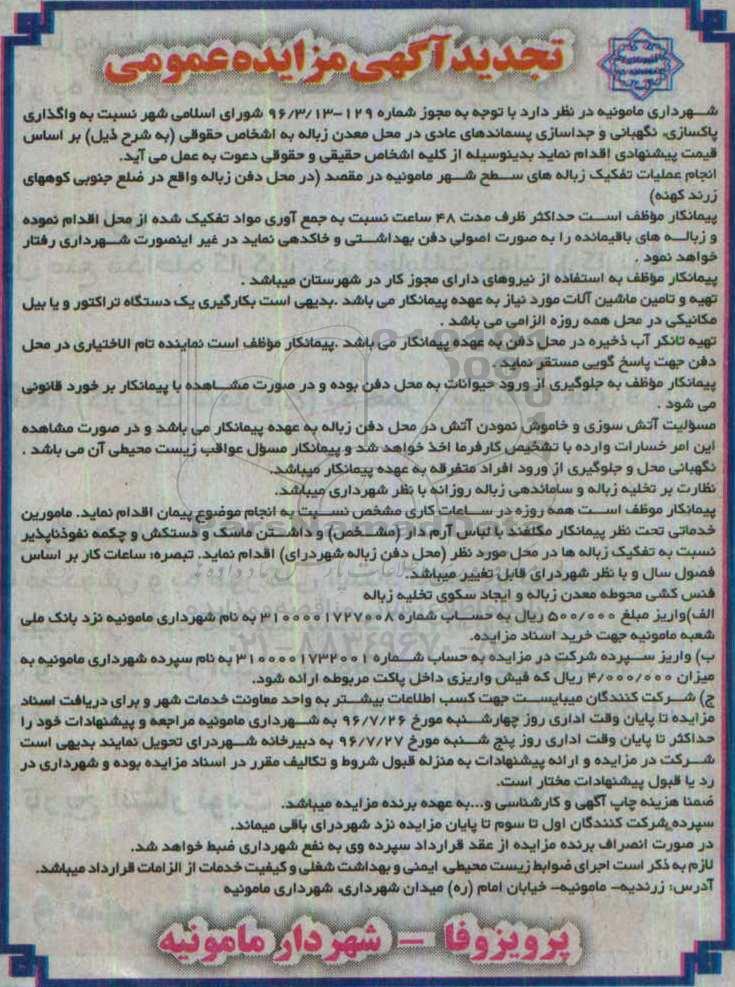 تجدید آگهی مزایده عمومی
شهرداری مامونیه در نظر دارد با توجه به مجوز شماره ۱۲۹-۹۶/۳/۱۳ شورای اسلامی شهر نسبت به واگذاری
پاکسازی، نگهبانی و جداسازی پسماندهای عادی در محل معدن زباله به اشخاص حقوقی (به شرح ذیل) بر اساس
قیمت پیشنهادی اقدام نماید بدینوسیله از کلیه اشخاص حقیقی و حقوقی دعوت به عمل می آید.
انجام عملیات تفکیک زباله های سطح شهر مامونیه در مقصد (در محل دفن زباله واقع در ضلع جنوبی کوههای
زرند کهنه)
پیمانکار مؤظف است حداکثر ظرف مدت ۴۸ ساعت نسبت به جمع آوری مواد تفکیک شده از محل اقدام نموده
و زباله های باقیمانده را به صورت اصولی دفن بهداشتی و خاکدهی نماید در غیر اینصورت شهرداری رفتار
خواهد نمود .
پیمانکار مؤظف به استفاده از نیروهای دارای مجوز کار در شهرستان میباشد .
تهیه و تامین ماشین آلات مورد نیاز به عهده پیمانکار می باشد .بدیهی است بکارگیری یک دستگاه تراکتور و یا بیل
مکانیکی در محل همه روزه الزامی می باشد .
تهیه تانکر آب ذخیره در محل دفن به عهده پیمانکار می باشد .پیمانکار مؤظف است نماینده تام الاختیاری در محل
دفن جهت پاسخ گویی مستقر نماید .
پیمانکار مؤظف به جلوگیری از ورود حیوانات به محل دفن بوده و در صورت مشاهده با پیمانکار بر خورد قانونی
می شود .
مسؤلیت آتش سوزی و خاموش نمودن آتش در محل دفن زباله به عهده پیمانکار می باشد و در صورت مشاهده
این امر خسارات وارده با تشخیص کارفرما اخذ خواهد شد و پیمانکار مسؤل عواقب زیست محیطی آن می باشد .
نگهبانی محل و جلوگیری از ورود افراد متفرقه به عهده پیمانکار میباشد.
نظارت بر تخلیه زباله و ساماندهی زباله روزانه با نظر شهرداری میباشد.
پیمانکار موظف است همه روزه در ساعات کاری مشخص نسبت به انجام موضوع پیمان اقدام نماید. مامورین
خدماتی تحت نظر پیمانکار مکلفند با لباس آرم دار (مشخص) و داشتن ماسک و دستکش و چکمه نفوذناپذیر
نسبت به تفکیک زباله ها در محل مورد نظر (محل دفن زباله شهردرای) اقدام نماید. تبصره: ساعات کار بر اساس
فصول سال و با نظر شهردرای قابل تغییر میباشد.
فنس کشی محوطه معدن زباله و ایجاد سکوی تخلیه زباله
الف)واریز مبلغ ۵۰۰/۰۰۰ ریال به حساب شماره ۳۱۰۰۰۰۱۷۲۷۰۰۸ به نام شهرداری مامونیه نزد بانک ملی
شعبه مامونیه جهت خرید اسناد مزایده.
ب) واریز سپرده شرکت در مزایده به حساب شماره ۳۱۰۰۰۰۱۷۳۲۰۰۱ به نام سپرده شهرداری مامونیه به
میزان ۴/۰۰۰/۰۰۰ ریال که فیش واریزی داخل پاکت مربوطه ارائه شود.
ج) شرکت کنندگان میبایست جهت کسب اطلاعات بیشتر به واحد معاونت خدمات شهر و برای دریافت اسناد
مزایده تا پایان وقت اداری روز چهارشنبه مورخ ۹۶/۷/۲۶ به شهرداری مامونیه مراجعه و پیشنهادات خود را
حداکثر تا پایان وقت اداری روز پنج شنبه مورخ ۹۶/۷/۲۷ به دبیرخانه شهردرای تحویل نمایند بدیهی است
شرکت در مزایده و ارائه پیشنهادات به منزله قبول شروط و تکالیف مقرر در اسناد مزایده بوده و شهرداری در
رد یا قبول پیشنهادات مختار است.
ضمنا هزینه چاپ آگهی و کارشناسی و...به عهده برنده مزایده میباشد.
سپرده شرکت کنندگان اول تا سوم تا پایان مزایده نزد شهردرای باقی میماند.
در صورت انصراف برنده مزایده از عقد قرارداد سپرده وی به نفع شهرداری ضبط خواهد شد.
لازم به ذکر است اجرای ضوابط زیست محیطی، ایمنی و بهداشت شغلی و کیفیت خدمات از الزامات قرارداد میباشد.
آدرس: زرندیه- مامونیه- خیابان امام (ره) میدان شهرداری، شهرداری مامونیه
پرویز وفا - شهردار مامونیه